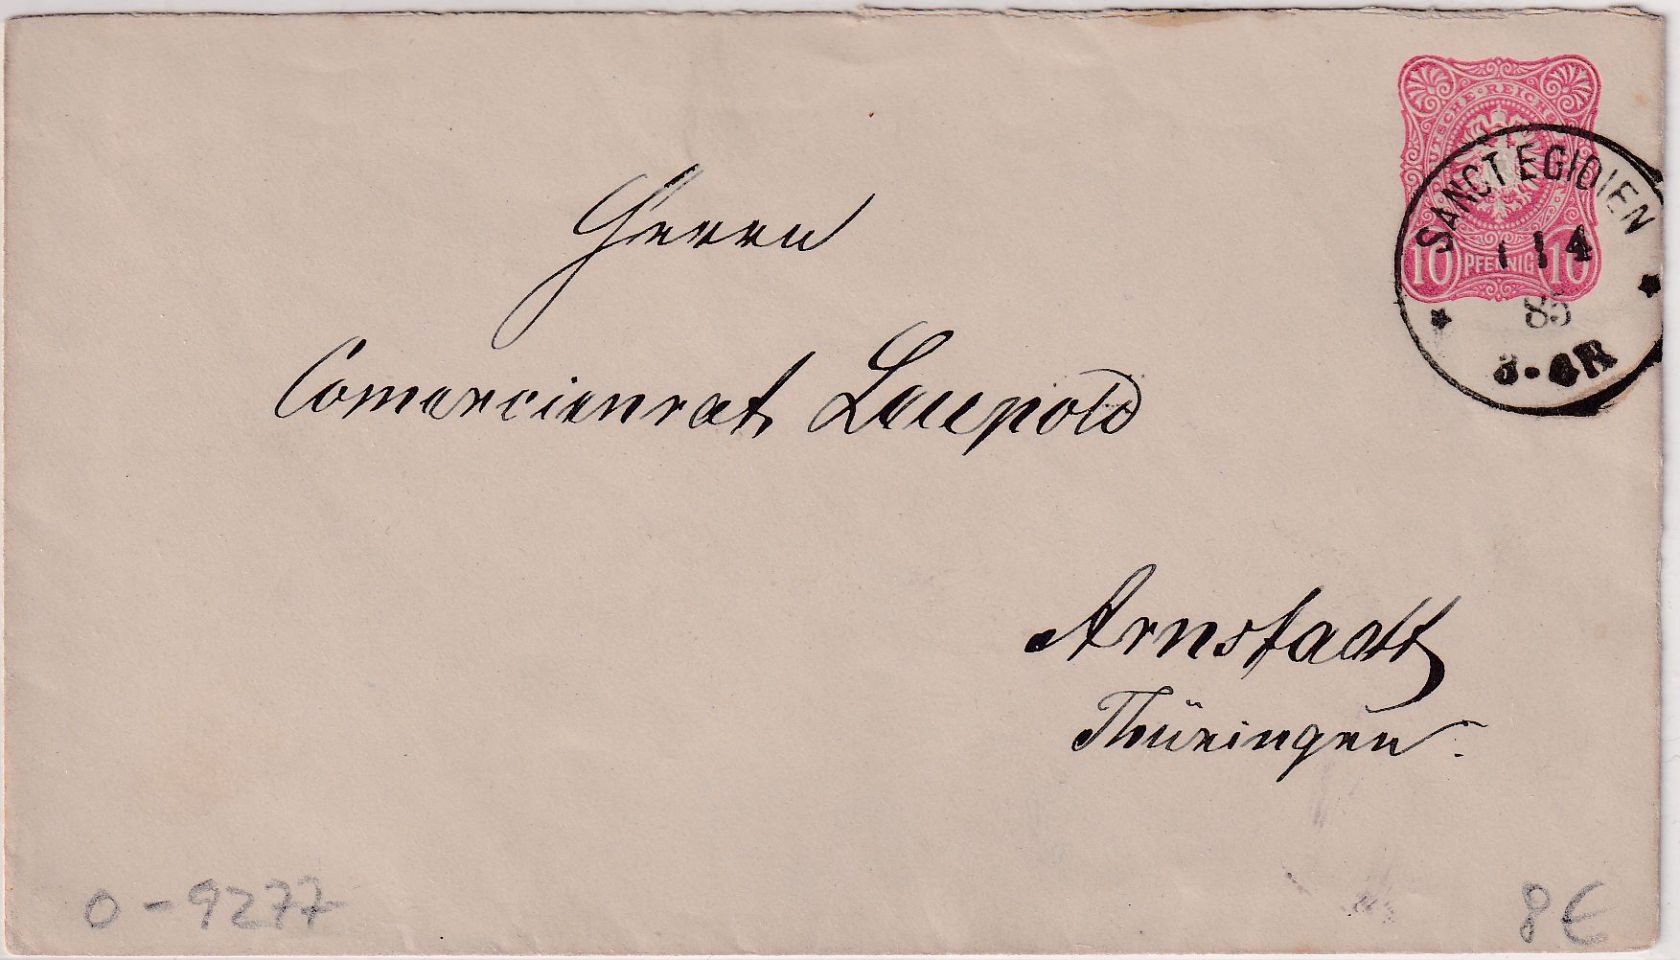 DEUTSCHE · REICHS
10 PFENNIG 10
SANCT EGIDIEN
1 1 4
85
Herrn
Comercienrat Leupold
Arnstadt
Thüringen.
0-9277
8€